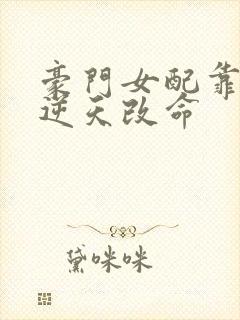 豪門女配靠
逆天改命
黛咪咪